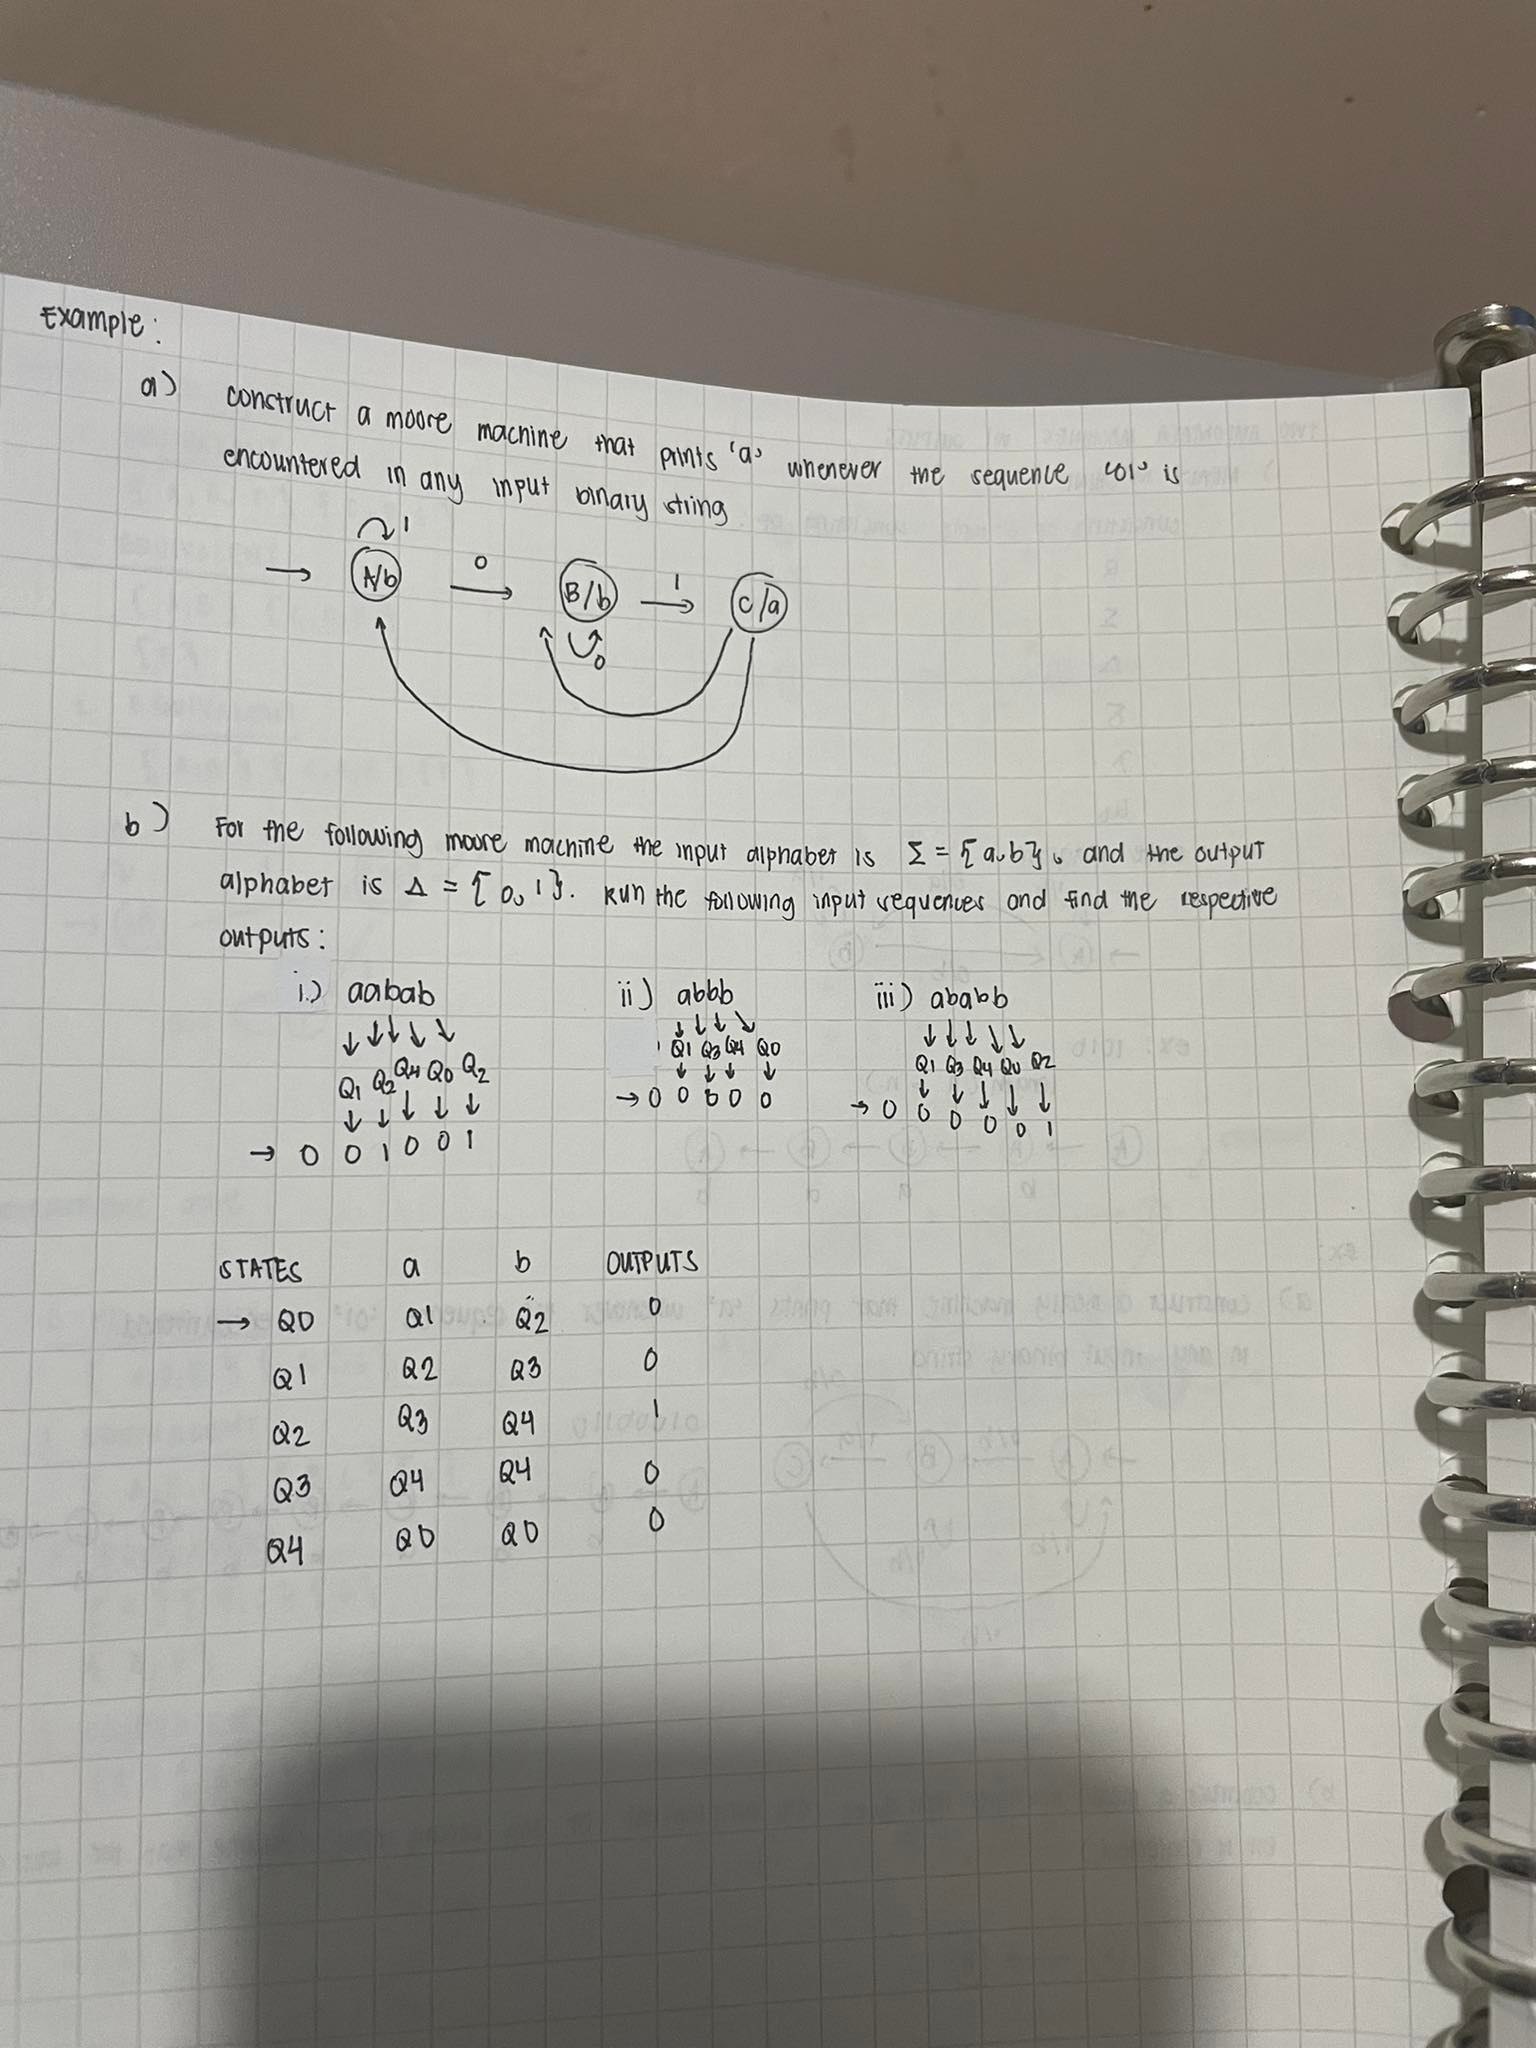 Example:
a) construct a moore machine that prints 'a' whenever the sequence '01' is
encountered in any input binary string
1
A/b 0 B/b 1 C/a
0
b) For the following moore machine the input alphabet is Σ = {a,b}, and the output
alphabet is Δ = {0,1}. Run the following input sequences and find the respective
outputs:
i.) aabab ii) abbb iii) ababb
Q1 Q2 Q4 Q0 Q2 Q1 Q3 Q4 Q0 Q1 Q3 Q4 Q0 Q2
→ 0 0 1 0 0 1 → 0 0 0 0 0 → 0 0 0 0 0 1
STATES a b OUTPUTS
→ Q0 Q1 Q2 0
Q1 Q2 Q3 0
Q2 Q3 Q4 1
Q3 Q4 Q4 0
Q4 Q0 Q0 0